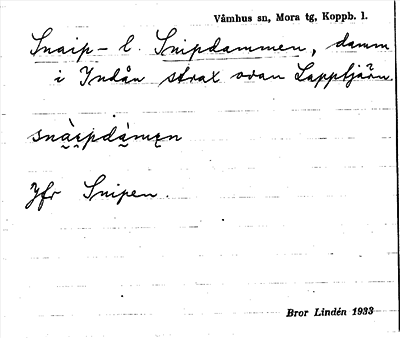 Våmhus sn, Mora tg, Koppb. l.
Snaip- l. Snipdammen, damm
i Indån strax ovan Lapptjärn.
snài̯pdàmεn
Jfr Snipen.
Bror Lindén 1933